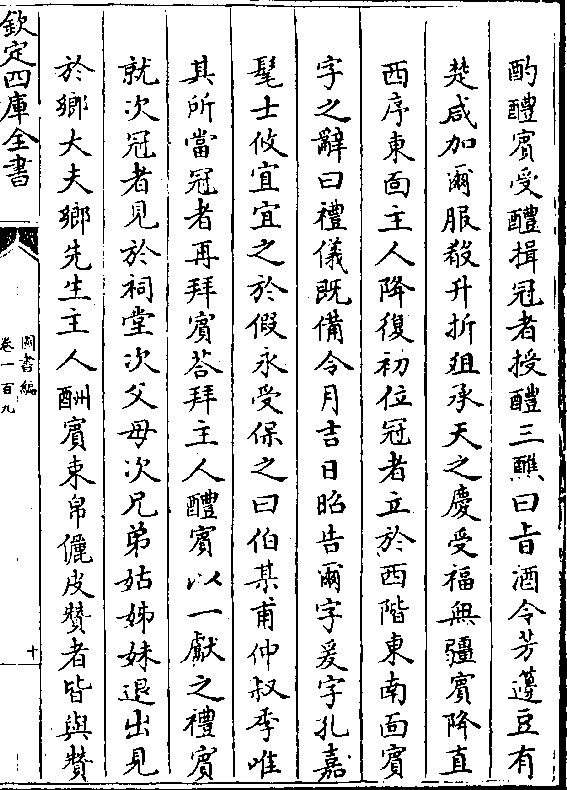 酌醴賓受醴揖冠者授醴三醮曰旨酒令芳籩豆有
楚咸加爾服殽升折俎承天之慶受福無疆賓降直
西序東面主人降復初位冠者立於西階東南面賓
字之辭曰禮儀既備令月吉日昭告爾字爰字孔嘉
髦士攸宜宜之於假永受保之曰伯某甫仲叔季唯
其所當冠者再拜賓荅拜主人醴賓以一獻之禮賓
就次冠者見於祠堂次父母次兄弟姑姊妹退出見
於鄉大夫鄉先生主人酬賓束帛儷皮贊者皆與贊
欽定四庫全書
圖書編
卷一百九
十